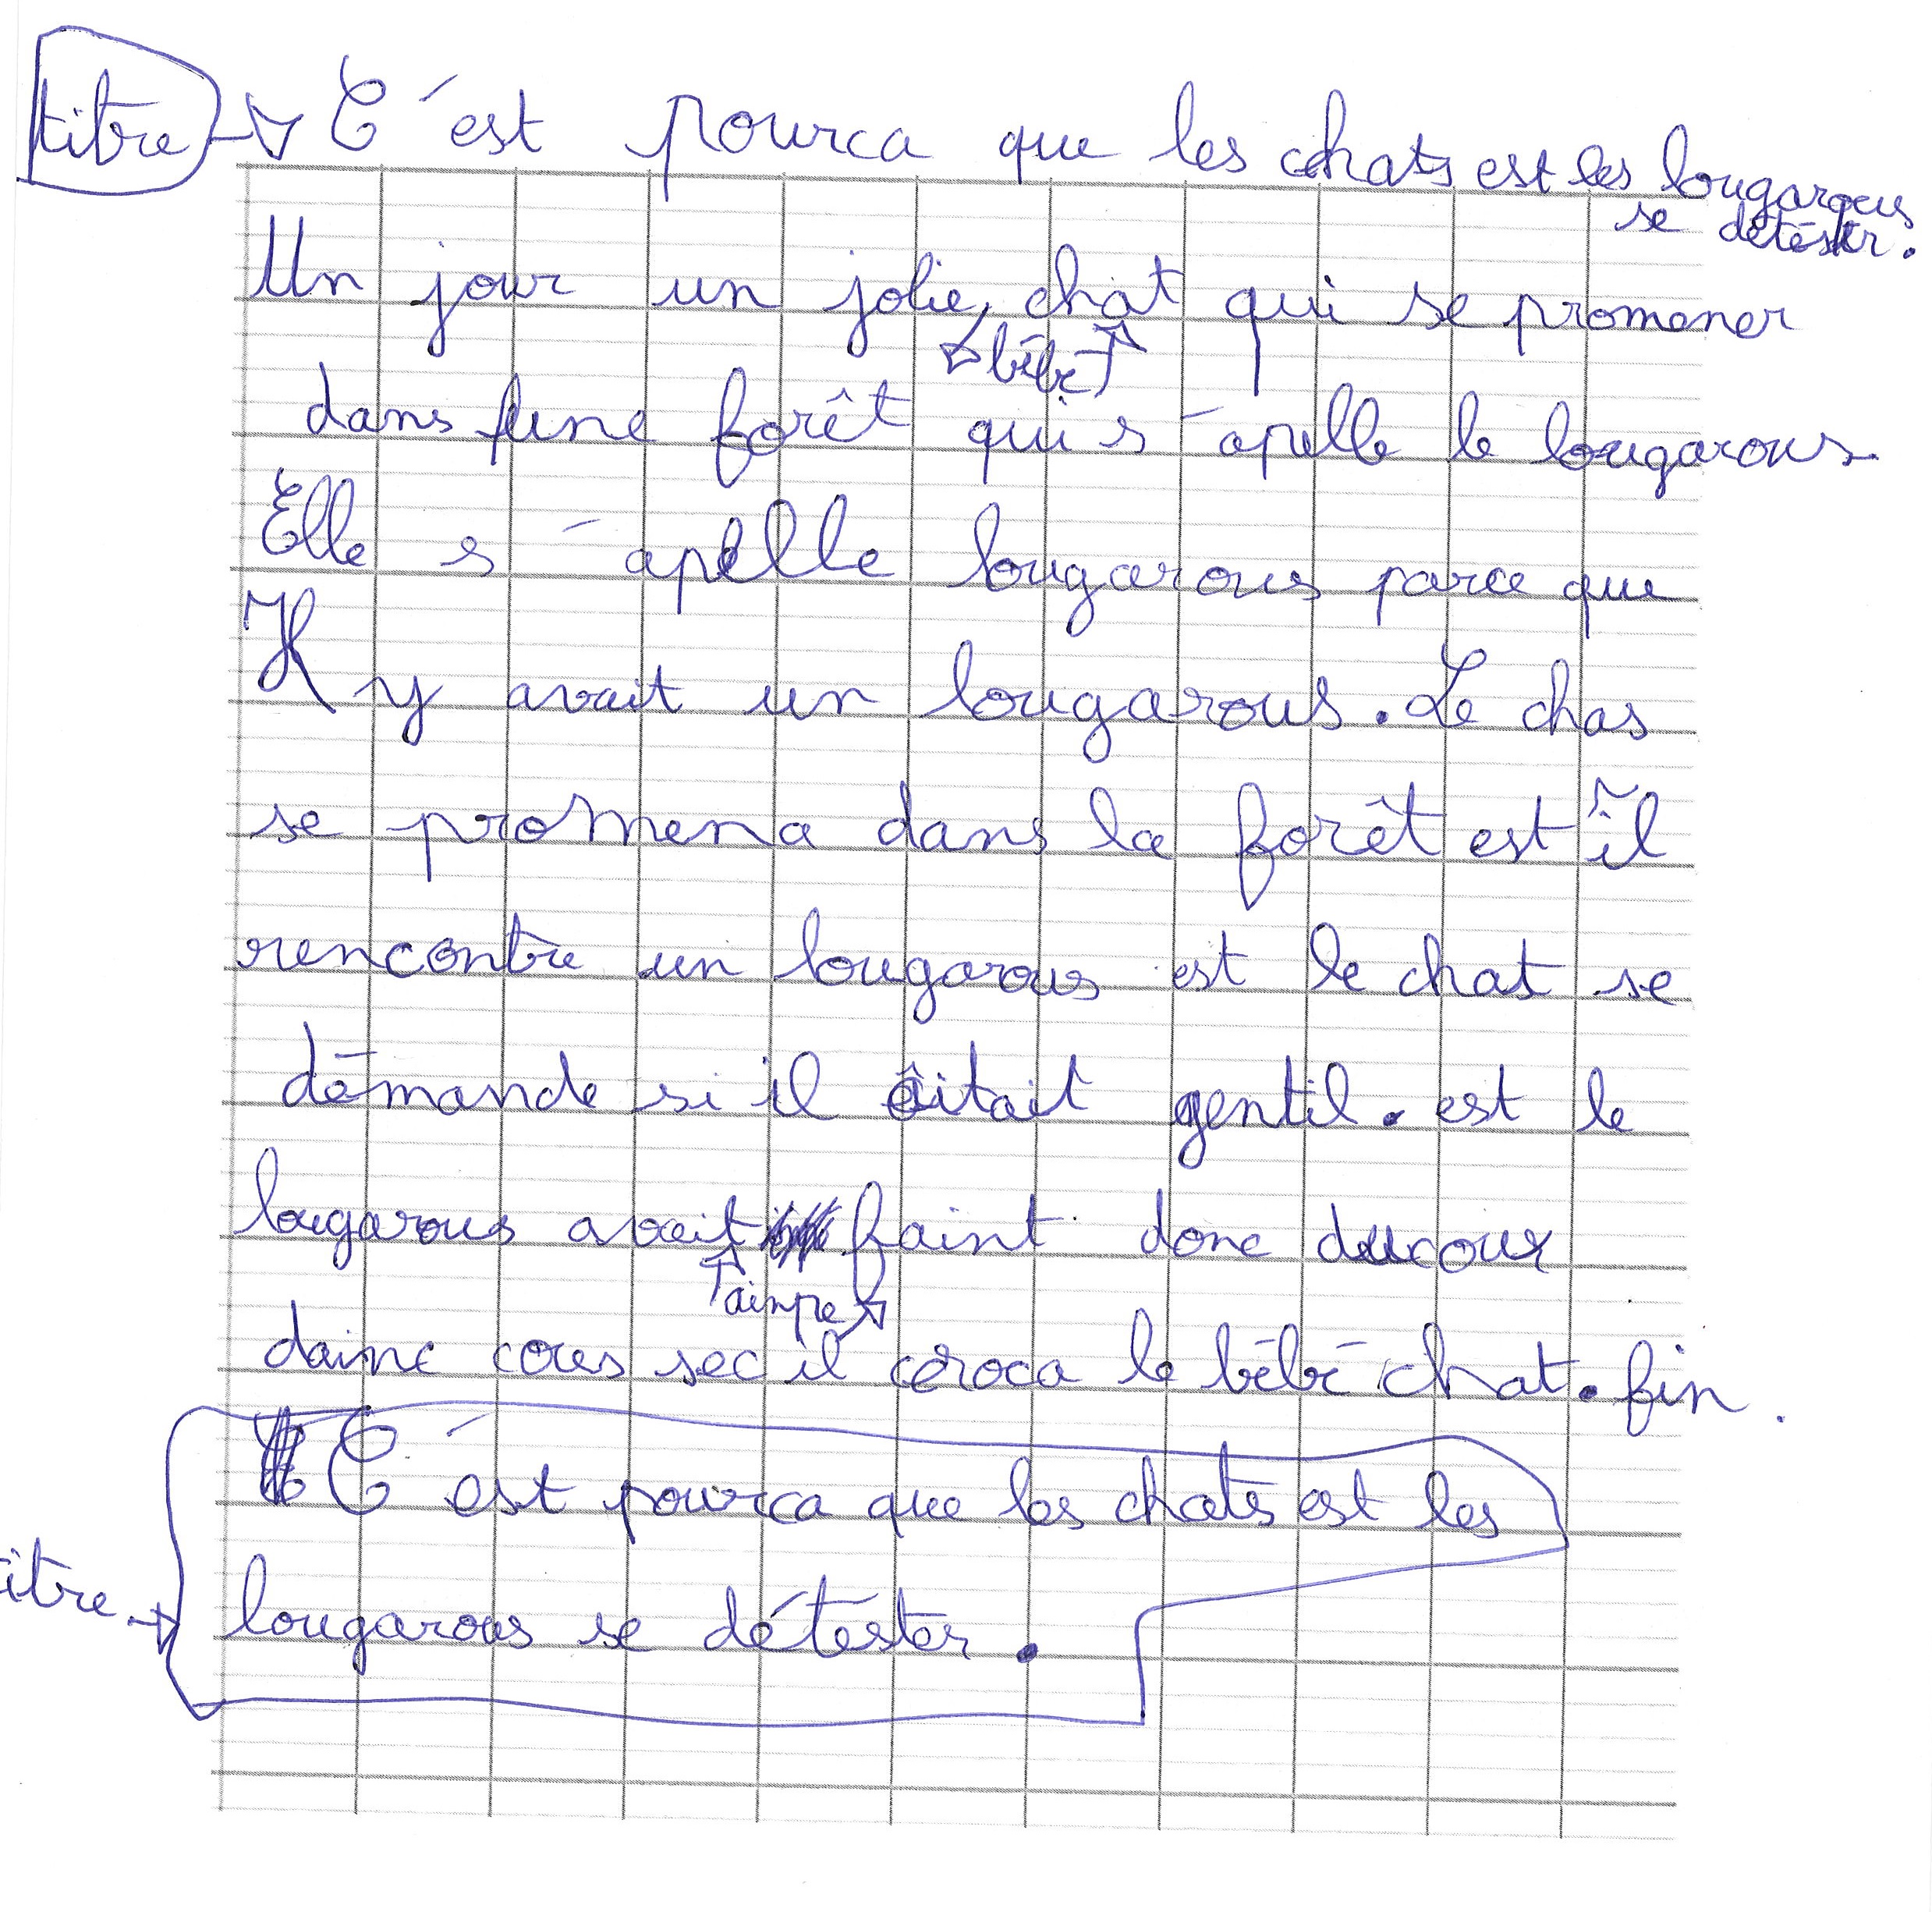 titre → C'est pourca que les chats est les lougarous
se détester.
Un jour un jolie chat qui se promener
bébé
dans une forêt qui s'apelle le lougarous
Elle s'apelle lougarous parce que
Il y avait un lougarous. Le chas
se promena dans la forêt est il
rencontre un lougarous est le chat se
démande si il était gentil. est le
lougarous avait faint donc ducoux
ainpe
daine cous sec il croca le bébé chat. fin.
C'est pourca que les chats est les
itre → lougarous se détester.